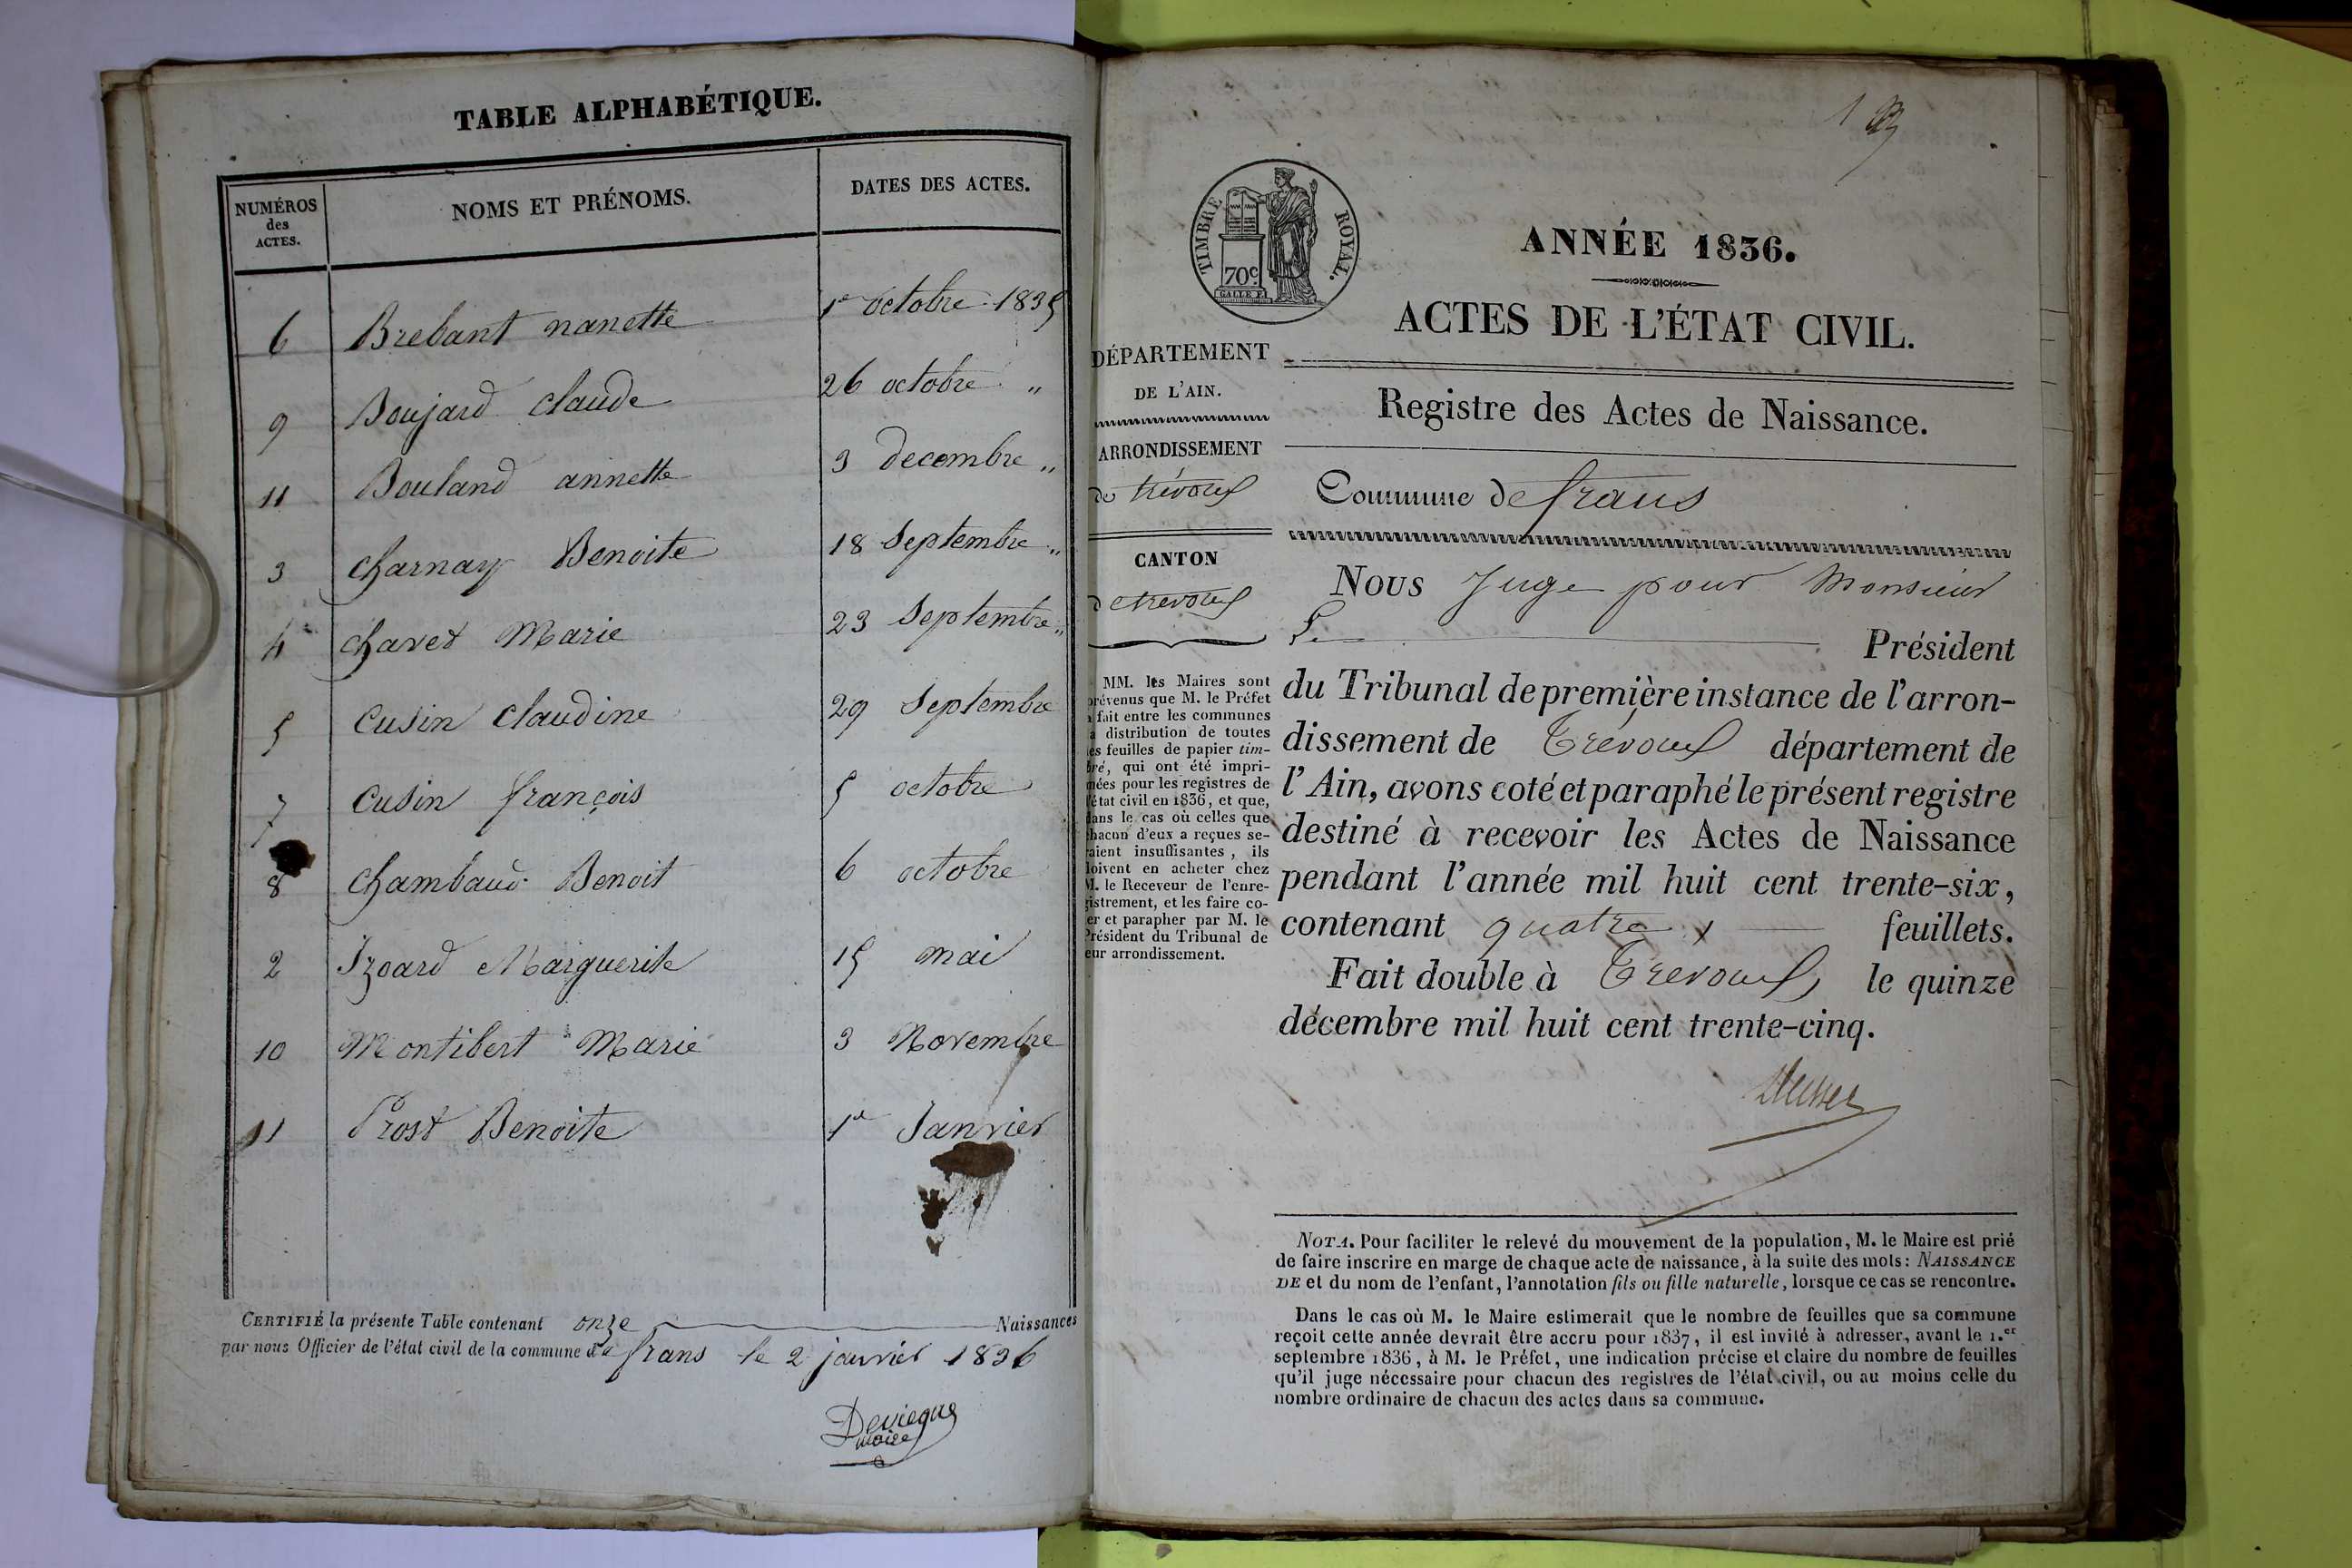 TABLE ALPHABÉTIQUE.
NUMÉROS
des
ACTES.
NOMS ET PRÉNOMS.
DATES DES ACTES.
6 Brebant nanette 1er octobre 1835
9 Boujard claude 26 octobre "
11 Bouland annette 3 decembre "
3 charnay Benoite 18 Septembre "
4 chavet Marie 23 Septembre "
5 cusin claudine 29 Septembre
7 cusin françois 5 octobre
8 chambaud Benoit 6 octobre
2 Izoard Marguerite 15 mai
10 Montibert Marie 3 Novembre
11 Prost Benoite 1er Janvier
CERTIFIÉ la présente Table contenant onze Naissances
par nous Officier de l'état civil de la commune de frans le 2 janvier 1836
maire
TIMBRE ROYAL.
70c
ANNÉE 1836.
ACTES DE L'ÉTAT CIVIL.
DÉPARTEMENT
DE L'AIN.
ARRONDISSEMENT
de trévoux
CANTON
de trevoux
MM. les Maires sont
prévenus que M. le Préfet
a fait entre les communes
la distribution de toutes
les feuilles de papier tim-
bré, qui ont été impri-
mées pour les registres de
l'état civil en 1836, et que,
dans le cas où celles que
chacun d'eux a reçues se-
raient insuffisantes, ils
doivent en acheter chez
M. le Receveur de l'enre-
gistrement, et les faire co-
ter et parapher par M. le
Président du Tribunal de
leur arrondissement.
Registre des Actes de Naissance.
Commune de frans
NOUS Juge pour Monsieur
Le Président
du Tribunal de première instance de l'arron-
dissement de Trévoux département de
l'Ain, avons coté et paraphé le présent registre
destiné à recevoir les Actes de Naissance
pendant l'année mil huit cent trente-six,
contenant quatre feuillets.
Fait double à Trevoux le quinze
décembre mil huit cent trente-cinq.
NOTA. Pour faciliter le relevé du mouvement de la population, M. le Maire est prié
de faire inscrire en marge de chaque acte de naissance, à la suite des mots: NAISSANCE
DE et du nom de l'enfant, l'annotation fils ou fille naturelle, lorsque ce cas se rencontre.
Dans le cas où M. le Maire estimerait que le nombre de feuilles que sa commune
reçoit cette année devrait être accru pour 1837, il est invité à adresser, avant le 1.er
septembre 1836, à M. le Préfet, une indication précise et claire du nombre de feuilles
qu'il juge nécessaire pour chacun des registres de l'état civil, ou au moins celle du
nombre ordinaire de chacun des actes dans sa commune.